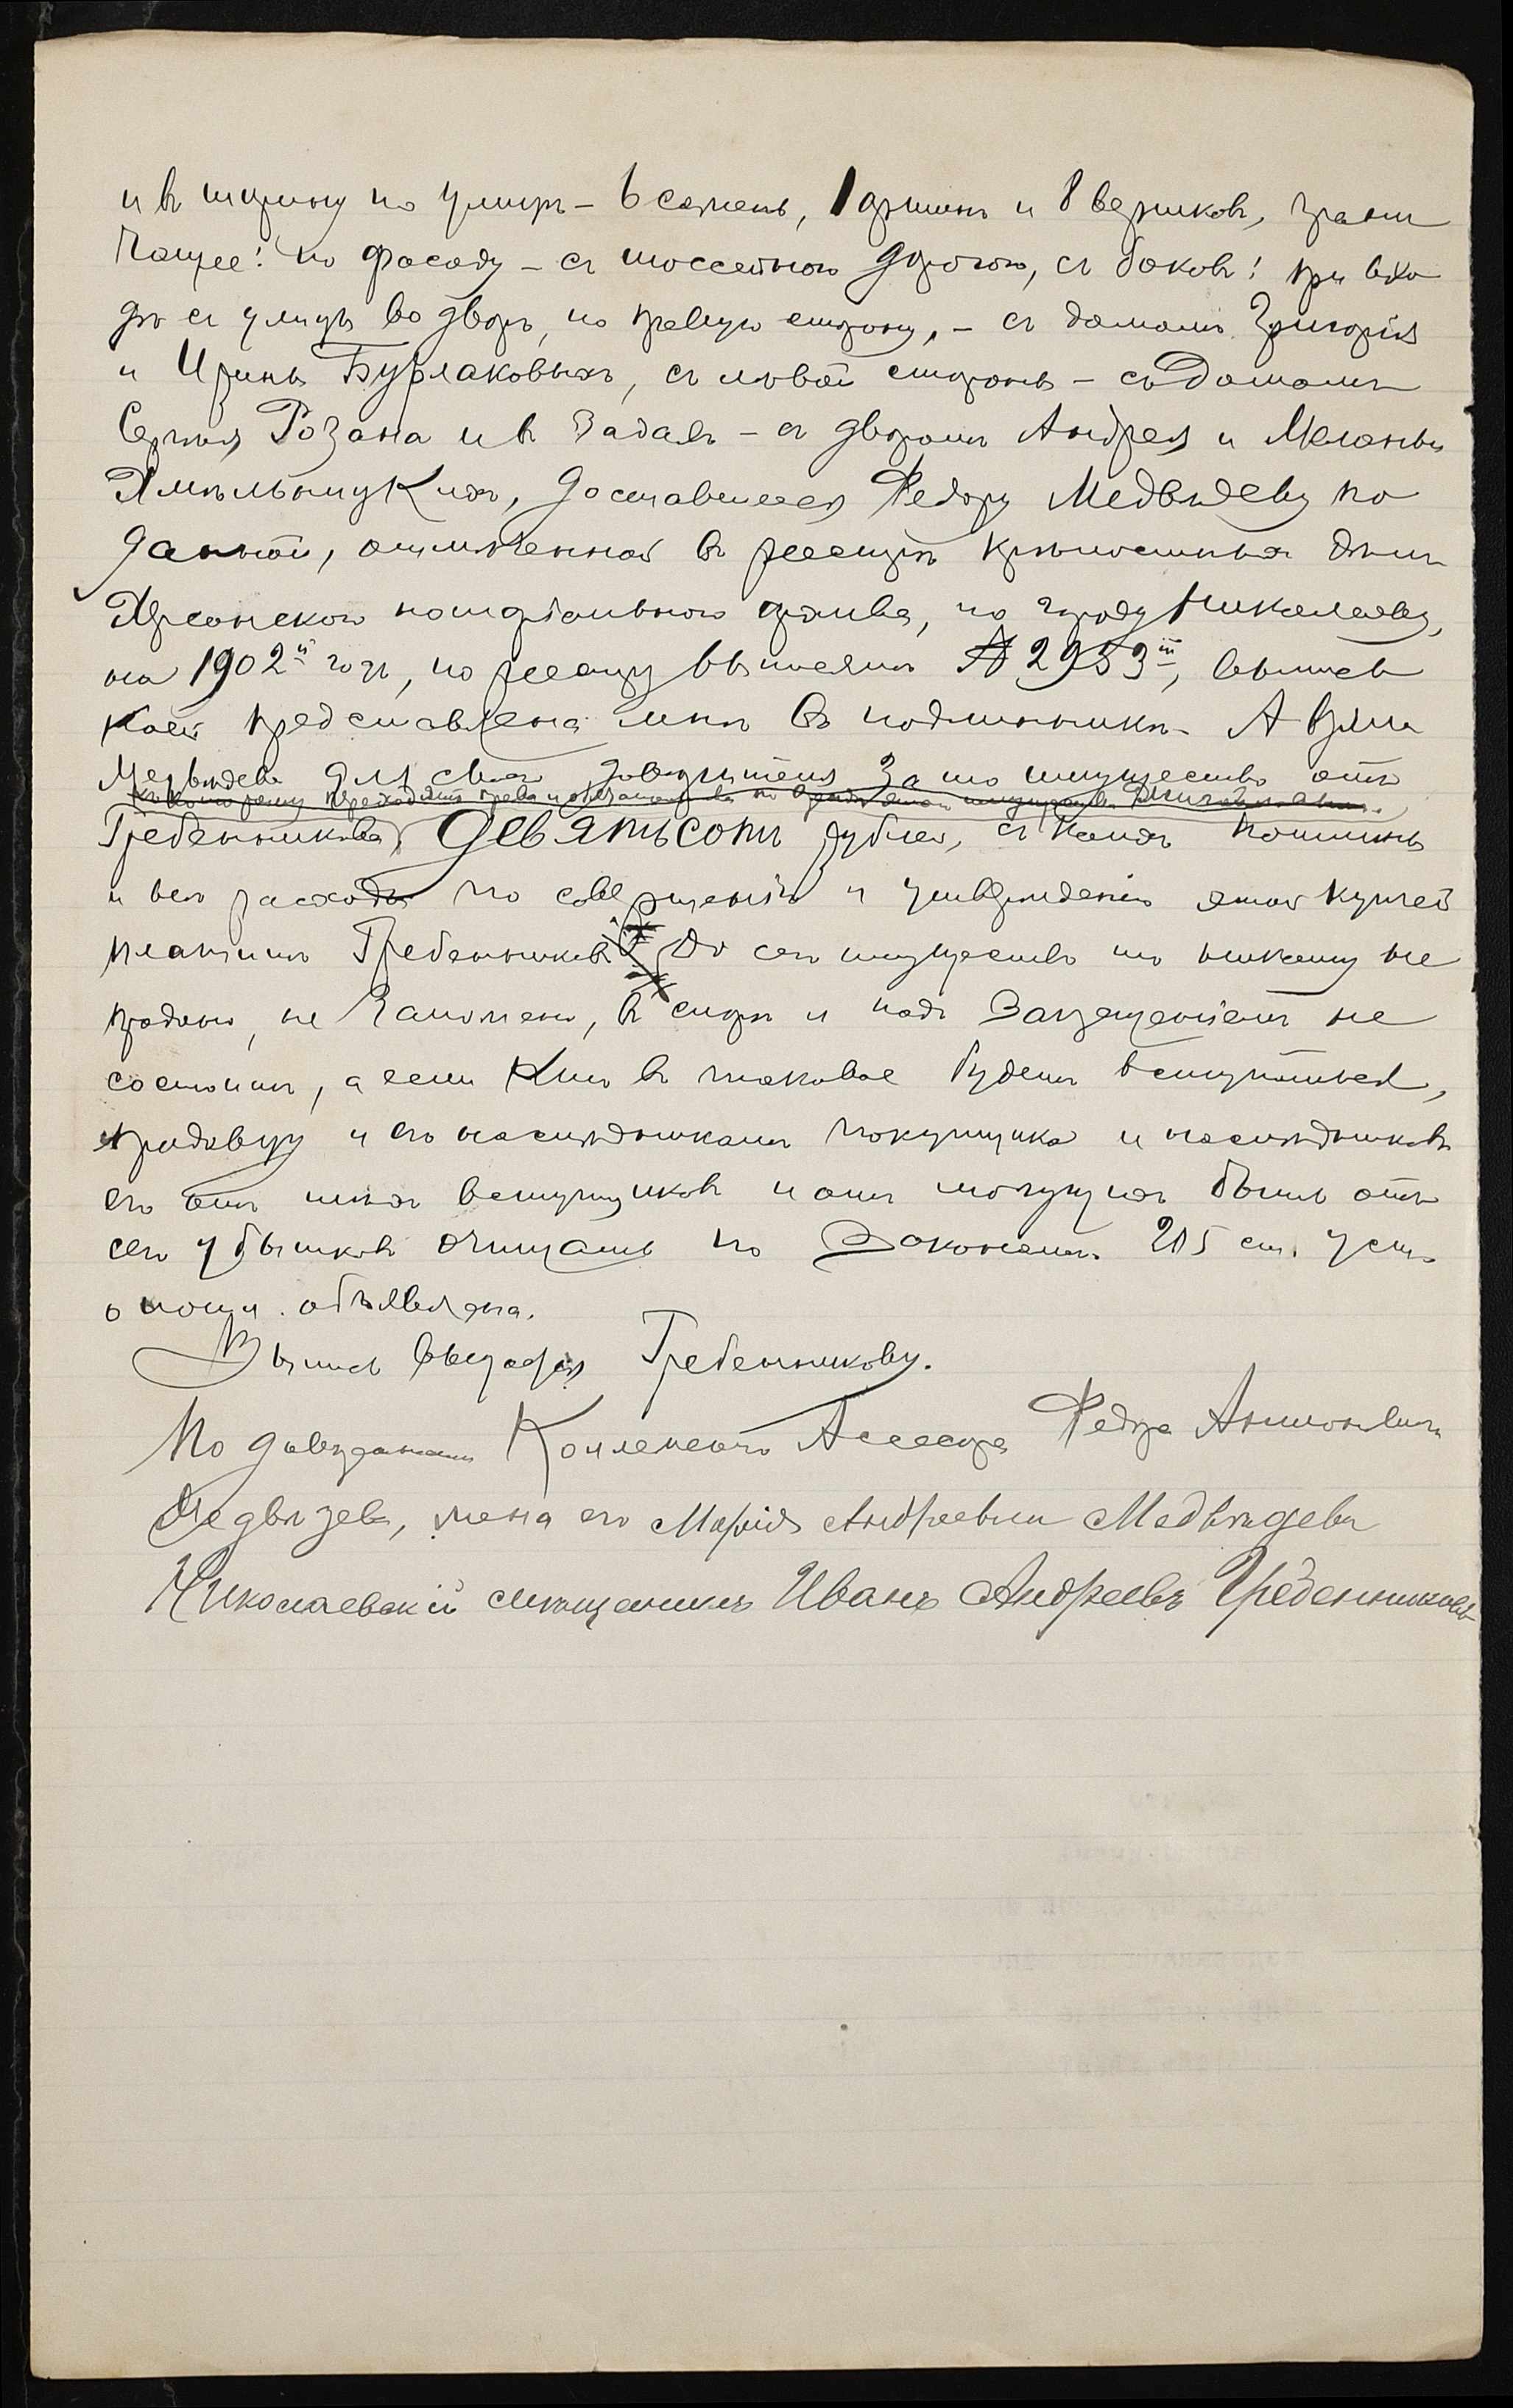 и въ ширину по улицѣ – 6 сажень, 1 аршинъ и 8 вершковъ, грани
чащее: по фасаду – съ шоссейною дорогою, съ боковъ: при вхо
дѣ съ улицы во дворъ, по правую сторону, – съ домомъ Григорія
и Ирины Бурлаковыхъ, съ лѣвой стороны – съ домомъ
Сергѣя Розана и въ задахъ – съ дворомъ Андрея и Меланьи
Хмѣльницкихъ, доставшееся Федору Медвѣдеву по
данной, отмѣченной въ реестрѣ крѣпостныхъ дѣлъ
Херсонскаго нотаріальнаго архива, по городу Николаеву,
на 1902й годъ, по реестру вышелшихъ № 2953й, выпись
коей представлена мнѣ въ подлинникѣ. А взяла
Медвѣдева для своего довѣрителя за то имущество отъ
къ которому переходятъ права и обязательства по
Гребенникова, девятьсотъ рублей, съ коихъ пошлины
и всѣ расходы по совершенію и утвержденію этой купчей
платитъ Гребенниковъ. До сего имущество то никому не
продано, не заложено, въ спорѣ и подъ запрещеніемъ не
состоитъ, а если кто въ таковое будетъ вступаться,
продавцу и его наслѣдникамъ покупщика и наслѣдниковъ
его отъ тѣхъ вступщиковъ и отъ могущихъ быть отъ
сего убытковъ очищать по законамъ. 205 ст. уст.
о пошл. объявлена.
Выпись выдать Гребенникову.
По довѣренности Коллежскаго Ассесора Федора Антоновича
Медвѣдева, жена его Марія Андреевна Медвѣдева
Николаевскій мѣщанинъ Иванъ Андреевъ Гребенниковъ